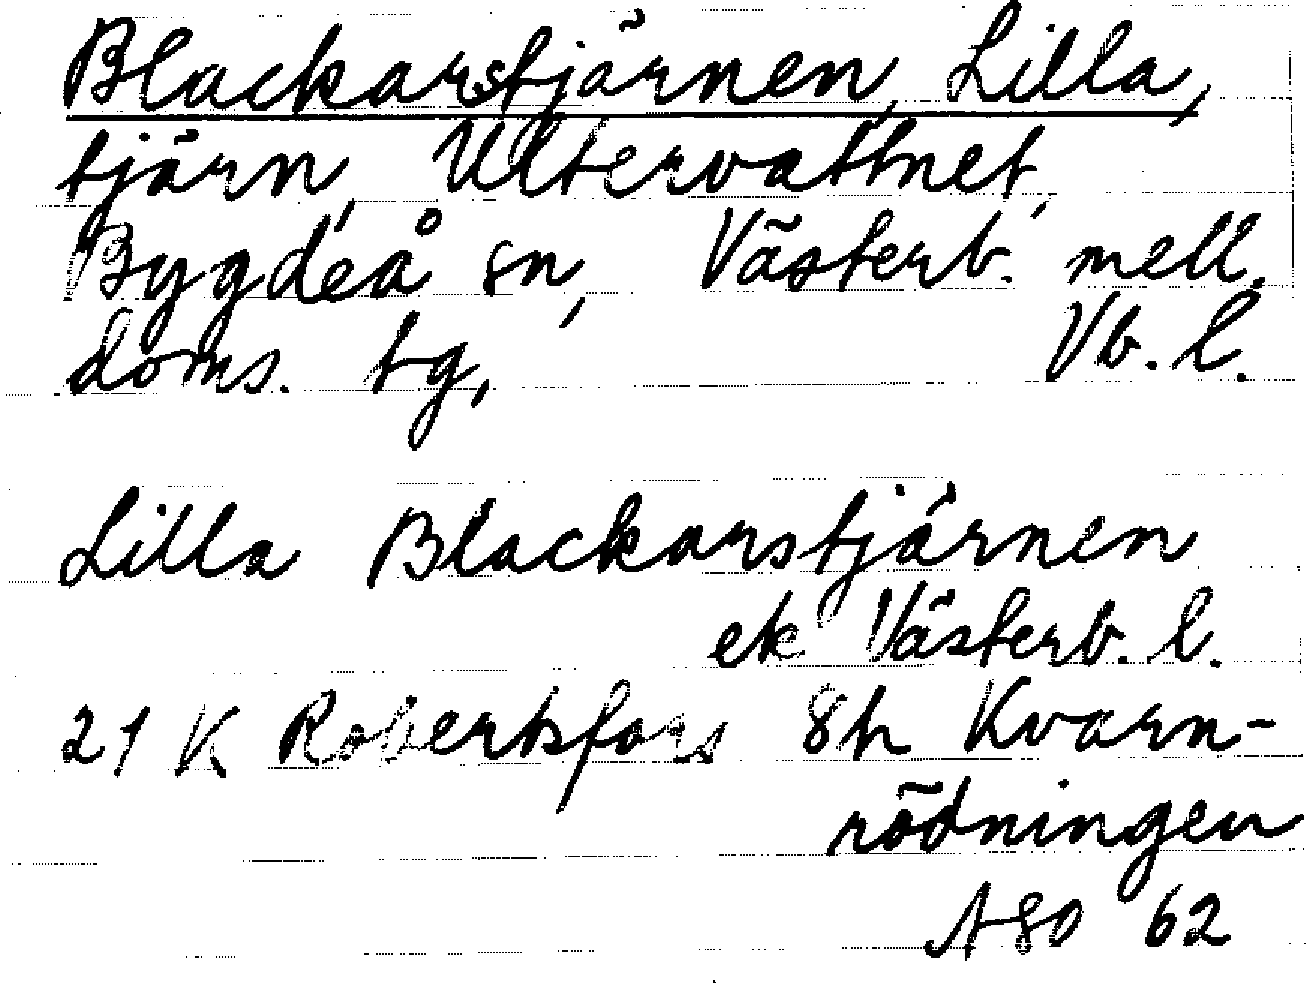 Blackarstjärnen, Lilla,
tjärn, Ultervattnet,
Bygdeå sn, Västerb. mell.
doms. tg, Vb. l.
Lilla Blackarstjärnen
ek Västerb. l.
21 K Robertsfors 8h Kvarn-
rödningen
A80 62